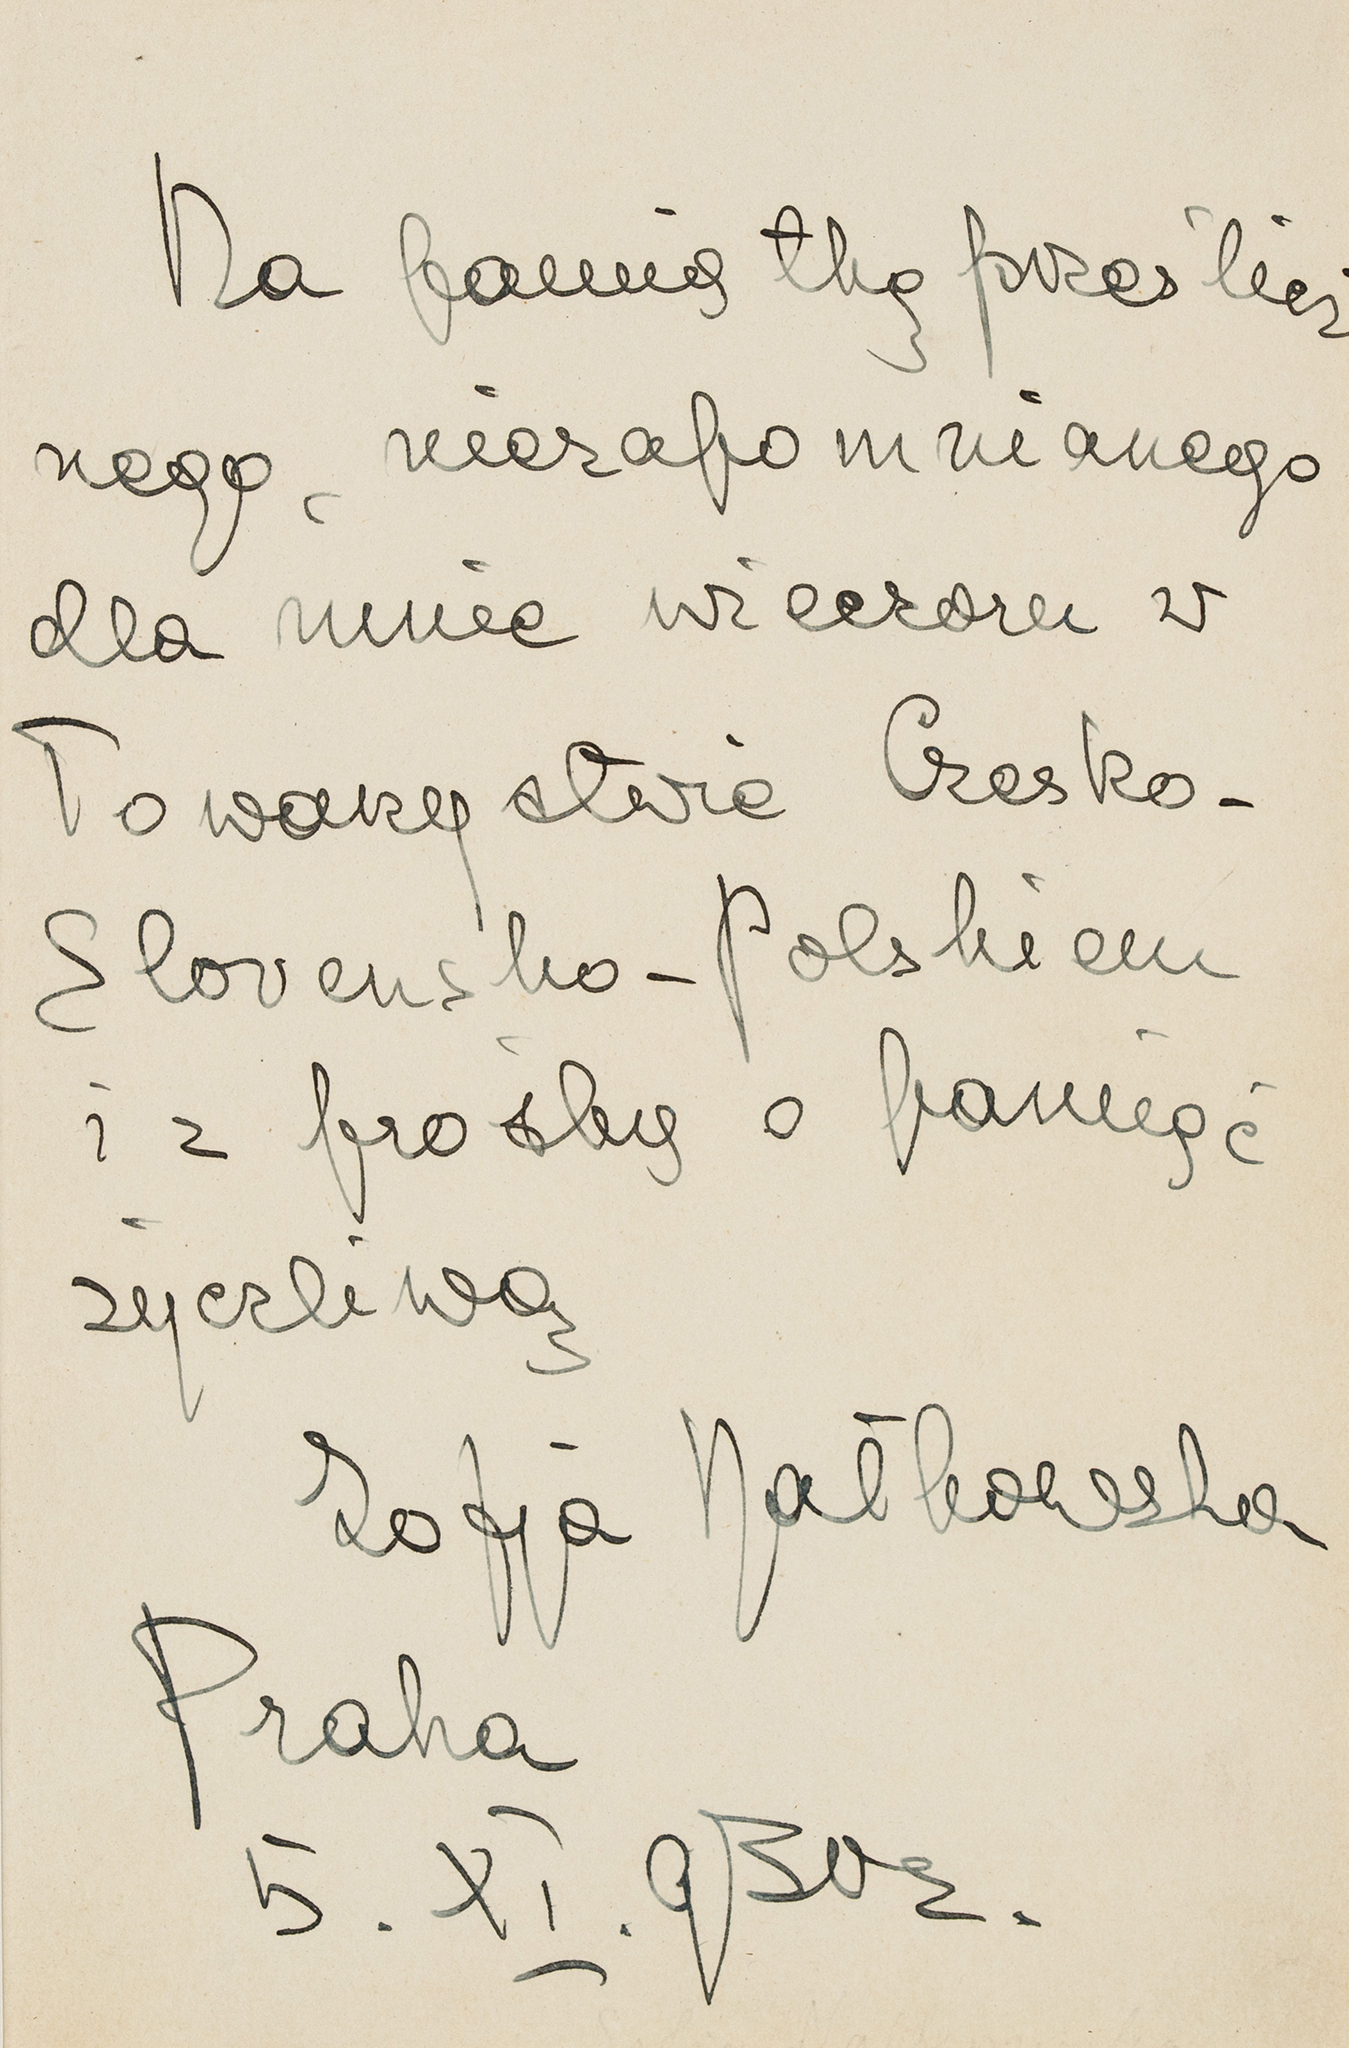 Na pamiątkę prześlicz
nego, niezapomnianego
dla mnie wieczoru w
Towarzystwie Czesko-
Slovensko-Polskiem
i z prośbą o pamięć
życzliwą
Zofja Nałkowska
Praha
5. XI. 930 r.